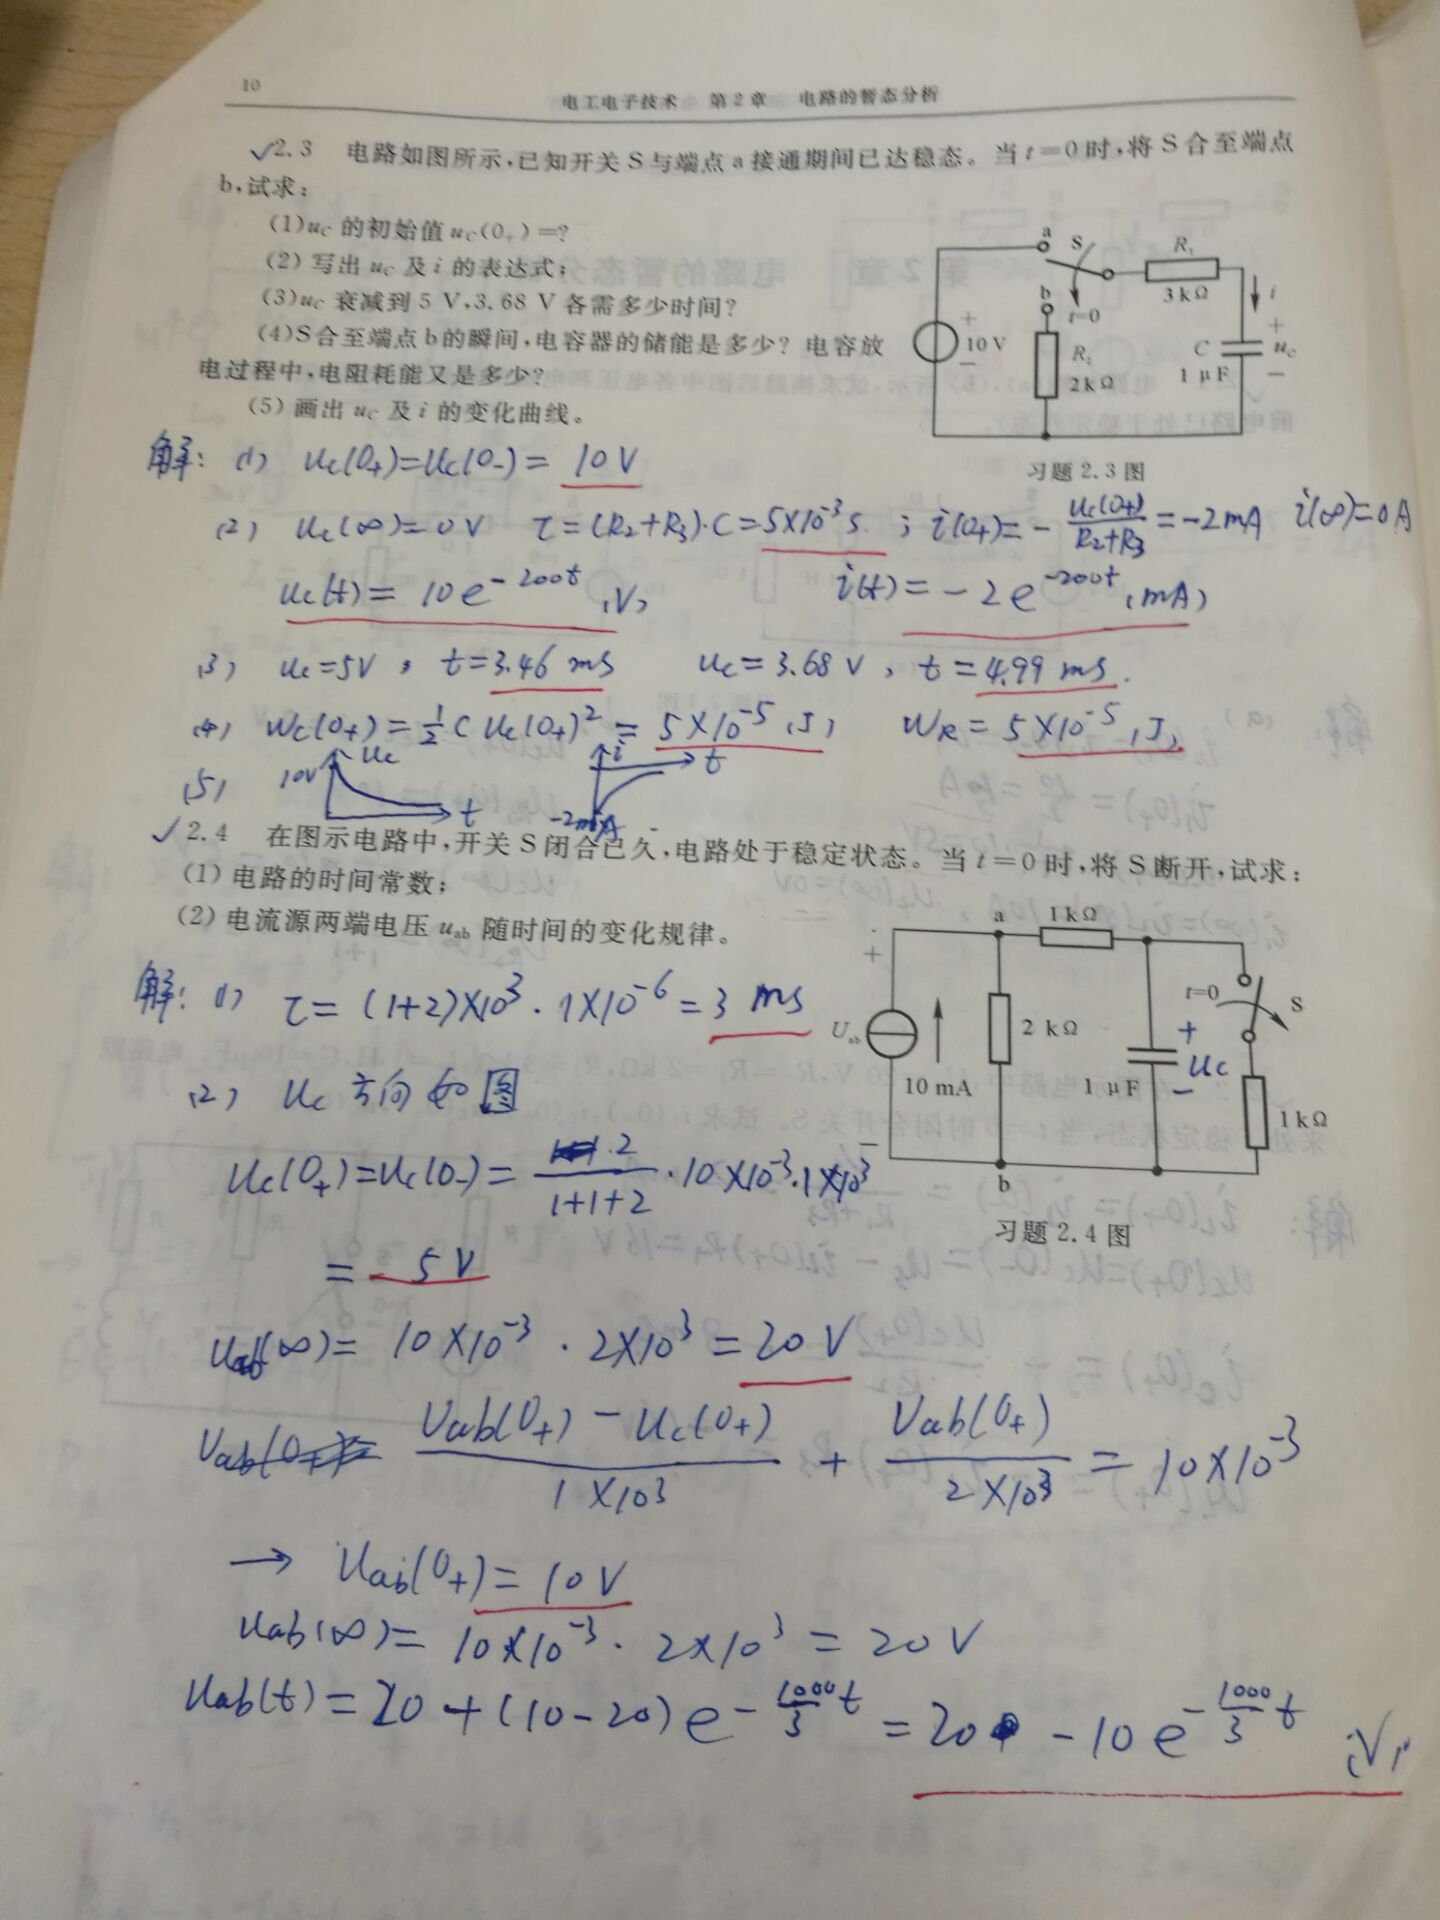 10
电工电子技术 第2章 电路的暂态分析
✓2.3 电路如图所示,已知开关S与端点a接通期间已达稳态。当t=0时,将S合至端点
b,试求:
(1)uC的初始值uC(0+)=?
(2)写出uC及i的表达式;
(3)uC衰减到5 V,3.68 V各需多少时间?
(4)S合至端点b的瞬间,电容器的储能是多少?电容放
电过程中,电阻耗能又是多少?
(5)画出uC及i的变化曲线。
a
S
R1
3kΩ
i
b
t=0
+
10 V
−
R2
2kΩ
C
1 μF
+
uC
−
习题2.3图
解: (1) uc(0+)=uc(0-)= 10V
(2) uc(∞)=0V τ=(R2+R3)·C=5×10⁻³s ; i(0+)=- uc(0+)/(R2+R3) =-2mA i(∞)=0A
uc(t)= 10e^{-200t} (V) i(t)= -2e^{-200t} (mA)
(3) uc=5V, t=3.46 ms uc=3.68V, t=4.99 ms.
(4) Wc(0+)=½C uc(0+)² = 5×10⁻⁵ (J) WR= 5×10⁻⁵ (J)
(5) 10V uc t i t -2mA
✓2.4 在图示电路中,开关S闭合已久,电路处于稳定状态。当t=0时,将S断开,试求:
(1)电路的时间常数;
(2)电流源两端电压uab随时间的变化规律。
a
1kΩ
+
Uab
−
10 mA
2 kΩ
1 μF
t=0
S
+
uc
−
1kΩ
b
习题2.4图
解: (1) τ= (1+2)×10³·1×10⁻⁶=3 ms
(2) uc方向如图
uc(0+)=uc(0-)= 2/(1+1+2) ·10×10⁻³·1×10³
= 5V
uab(∞)= 10×10⁻³·2×10³=20V
(Uab(0+)-uc(0+))/(1×10³) + Uab(0+)/(2×10³) = 10×10⁻³
→ Uab(0+)= 10V
uab(∞)= 10×10⁻³·2×10³=20V
uab(t)=20+(10-20)e^{-1000/3 t} =20-10e^{-1000/3 t} (V)